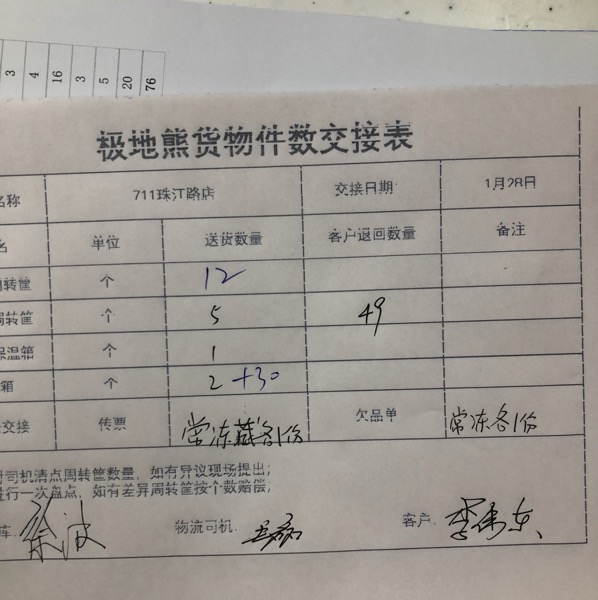 3
4
16
3
5
20
76
极地熊货物件数交接表
名称 711珠江路店 交接日期: 1月28日
名 单位 送货数量 客户退回数量 备注
转筐 个 12
周转筐 个 5 49
保温箱 个 1
箱 个 2 +30
交接 传票 常冻藏各1份 欠品单 常冻各1份
对司机清点周转筐数量, 如有异议现场提出;
进行一次盘点, 如有差异周转筐按个数赔偿;
库: 物流司机: 客户: 李伟东